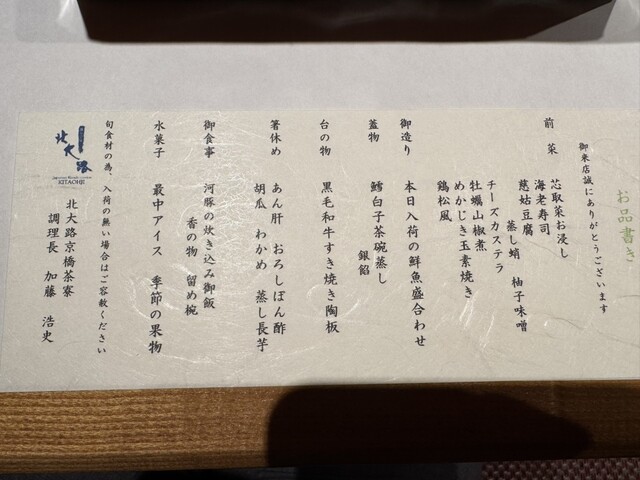 お品書き
御来店誠にありがとうございます
前菜 芯取菜お浸し
海老寿司
慈姑豆腐
蒸し蛸 柚子味噌
チーズカステラ
牡蠣山椒煮
めかじき玉素焼き
鶏松風
御造り 本日入荷の鮮魚盛合わせ
蓋物 鱈白子茶碗蒸し
銀餡
台の物 黒毛和牛すき焼き陶板
箸休め あん肝 おろしぽん酢
胡瓜 わかめ 蒸し長芋
御食事 河豚の炊き込み御飯
香の物 留め椀
水菓子 最中アイス 季節の果物
旬食材の為、入荷の無い場合はご容赦ください
北大路
KITAOHJI
北大路京橋茶寮
調理長 加藤 浩史